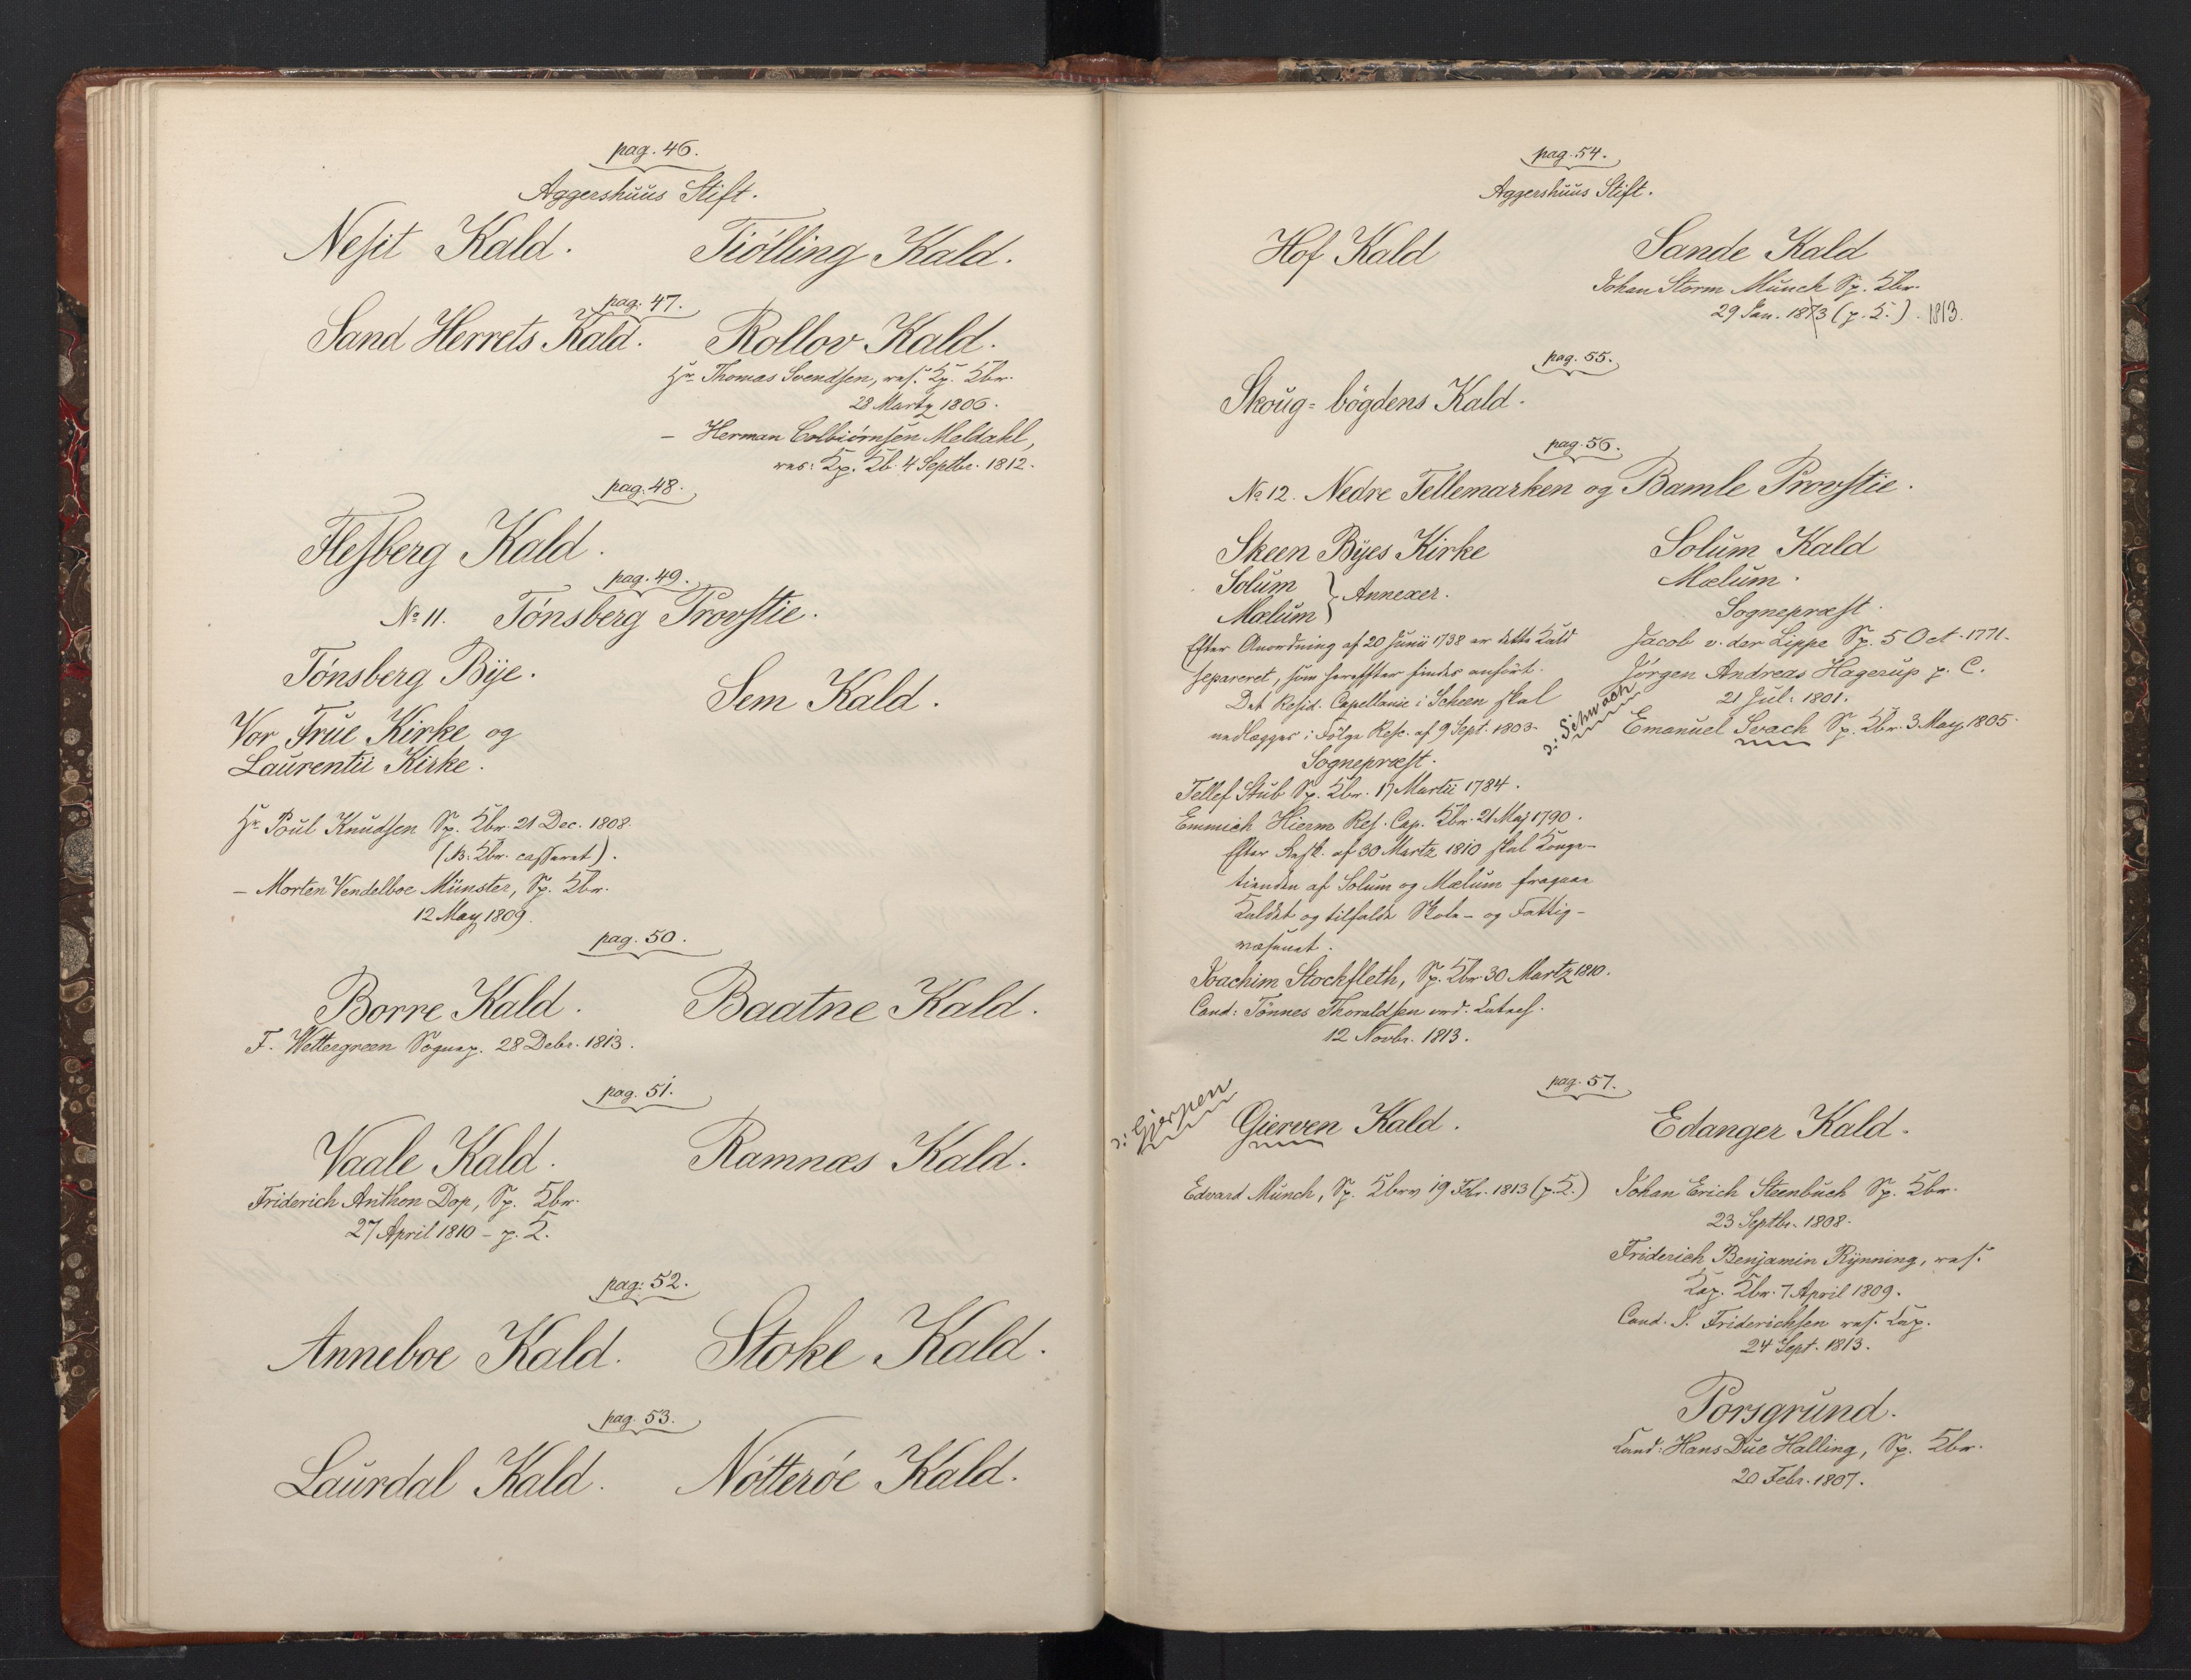 pag. 46.
Aggershuus Stift.
Nesit Kald.
Tiølling Kald.
pag. 47.
Sand Herrets Kald.
Rollov Kald.
Hr. Thomas Svendsen, res. Kp. Kbr.
28 Martz 1806.
— Herman Colbiørnsen Meldahl,
res: Kp. Kb. 4 Septbr. 1812.
pag. 48.
Flesberg Kald.
pag. 49.
No 11. Tønsberg Provstie.
Tønsberg Bÿe.
Vor Frue Kirke og
Laurentii Kirke.
Hr. Poul Knudsen Sp. Kbr. 21 Dec. 1808.
(NB. Kbr. casseret).
— Morten Vendelboe Münster, Sp. Kbr.
12 May 1809.
Sem Kald.
pag. 50.
Borre Kald.
F. Wettergreen Sognep. 28 Debr. 1813.
Baatne Kald.
pag. 51.
Vaale Kald.
Friderich Anthon Dop, Sp. Kbr.
27 April 1810 - p. K.
Ramnæs Kald.
pag. 52.
Anneboe Kald.
Stoke Kald.
pag. 53.
Laurdal Kald.
Nøtterøe Kald.
pag. 54.
Aggershuus Stift.
Hof Kald
Sande Kald
Johan Storm Munch Sp. Kbr.
29 Jan. 1873 (p. K.). 1813.
pag. 55.
Skoug= bøgdens Kald.
pag. 56.
No 12. Nedre Tellemarken og Bamle Provstie.
Skeen Bÿes Kirke
Solum
Mælum } Annexer.
Efter Anordning af 20 Junii 1738 er dette Kald
separeret, som herefter findes anført.
Det Resid. Capellanie i Scheen skal
nedlægges i Følge Resc. af 9 Sept. 1803.
Sognepræst.
Tellef Stub Sp. Kbr. 17 Martii 1784.
Emmich Hierm Res. Cap. Kbr. 21 Maj 1790.
Efter Resk. af 30 Martz 1810 skal Konge-
tienden af Solum og Mælum fragaae
Kaldet og tilfalde Skole- og Fattig-
væsenet.
Joachim Stockfleth, Sp. Kbr 30 Martz 1810.
Cand: Tønnes Thoraldsen ord. Catech.
12 Novbr. 1813.
Solum Kald
Mælum.
Sognepræst.
Jacob v. der Lippe Sp. 5 Oct. 1771.
Jørgen Andreas Hagerup p. C.
21 Jul. 1801.
ɔ: Schwach
Emanuel Svach Sp. Kbr. 3 May 1805.
pag. 57.
ɔ: Gjerpen
Gierven Kald.
Edvard Münch, Sp. Kbrv 19 Febr. 1813 (p. K.)
Edanger Kald.
Johan Erich Steenbuch Sp. Kbr.
23 Septbr. 1808.
Friderich Benjamin Rÿnning, res.
Kap. Kbr. 7 April 1809.
Cand. S. Friderichsen res. Kap.
24 Sept. 1813.
Porsgrund.
Cand: Hans Due Halling, Sp. Kbr.
20 Febr. 1807.